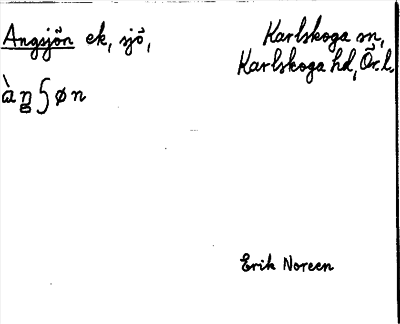 Angsjön ek, sjö,
Karlskoga sn,
Karlskoga hd, Ör. l.
àŋʃøn
Erik Noreen